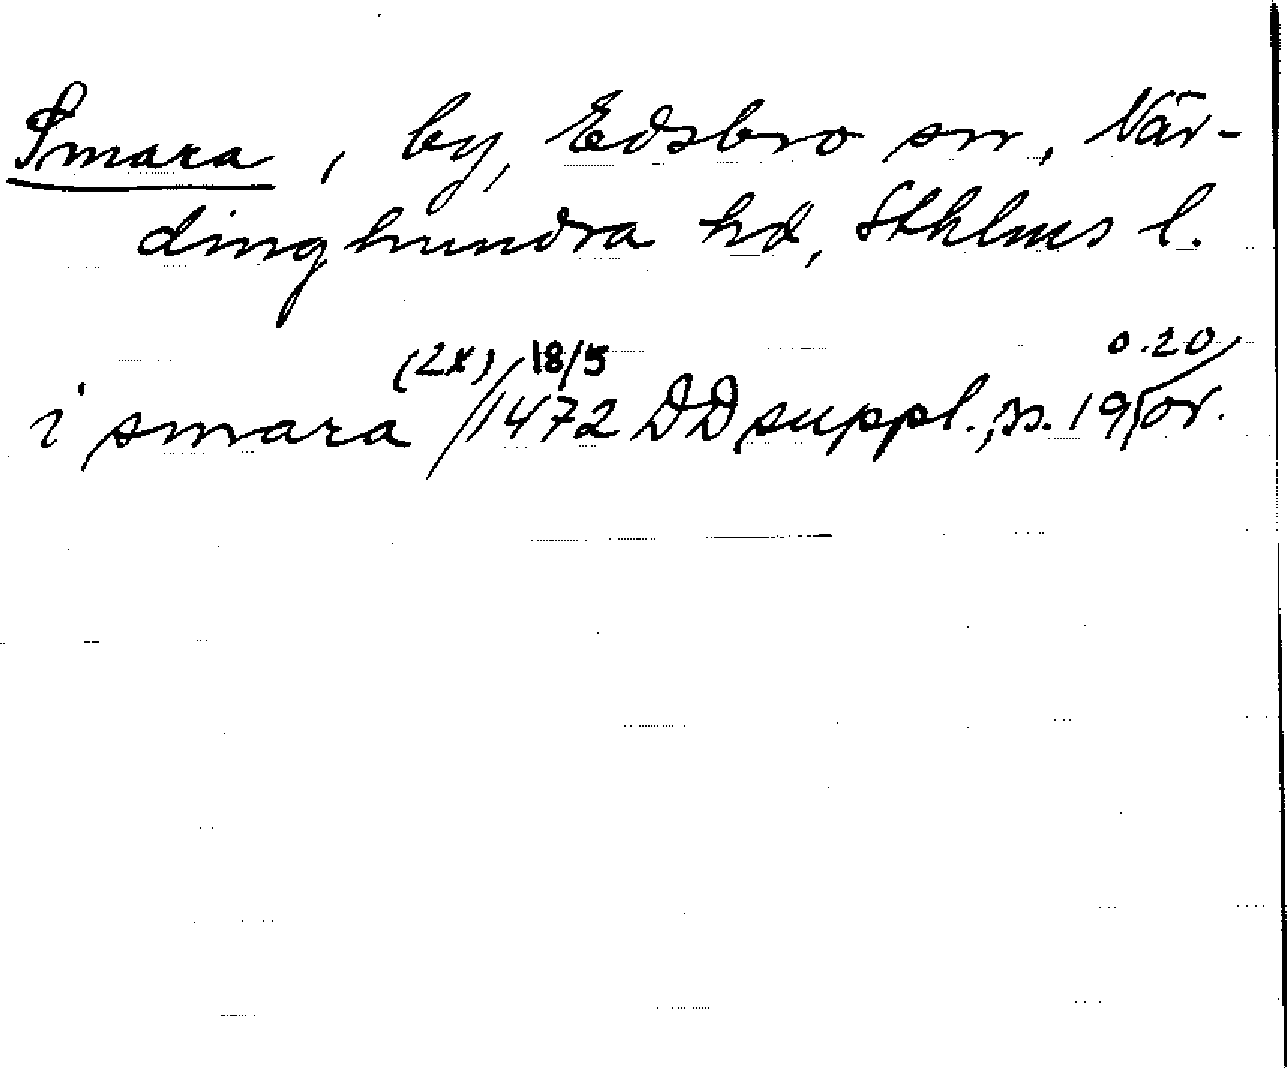 Smara, by, Edsbro sn, När-
dinghundra hd, Sthlms l.
(2x) 18/5 o. 20
i smara / 1472 DD suppl., s. 19, or.